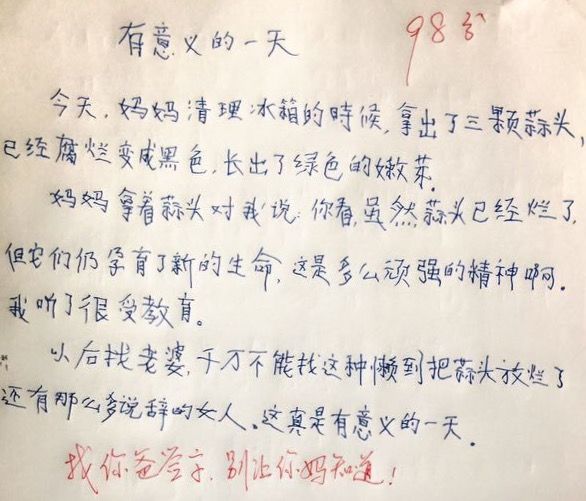 有意义的一天
98分
今天，妈妈清理冰箱的時候，拿出了三颗蒜头，
已经腐烂变成黑色，长出了绿色的嫩芽.
妈妈拿着蒜头对我说：你看，虽然蒜头已经烂了，
但它们仍孕育了新的生命，这是多么顽强的精神啊.
我听了很受教育。
以后找老婆，千万不能找这种懒到把蒜头放烂了
还有那么多说辞的女人。这真是有意义的一天.
找你爸签字，别让你妈知道！